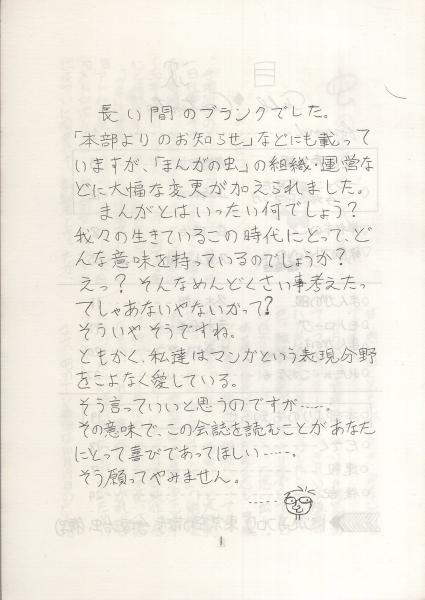 長い間のブランクでした。
「本部よりのお知らせ」などにも載って
いますが、「まんがの虫」の組織・運営な
どに大幅な変更が加えられました。
まんがとはいったい何でしょう?
我々の生きているこの時代にとって、ど
んな意味を持っているのでしょうか?
えっ? そんなめんどくさい事考えたっ
てしゃあないやないかって?
そういや そうですね。
ともかく、私達はマンガという表現分野
をこよなく愛している。
そう言っていいと思うのですが……。
その意味で、この会誌を読むことがあなた
にとって喜びであってほしい……。
そう願ってやみません。
1